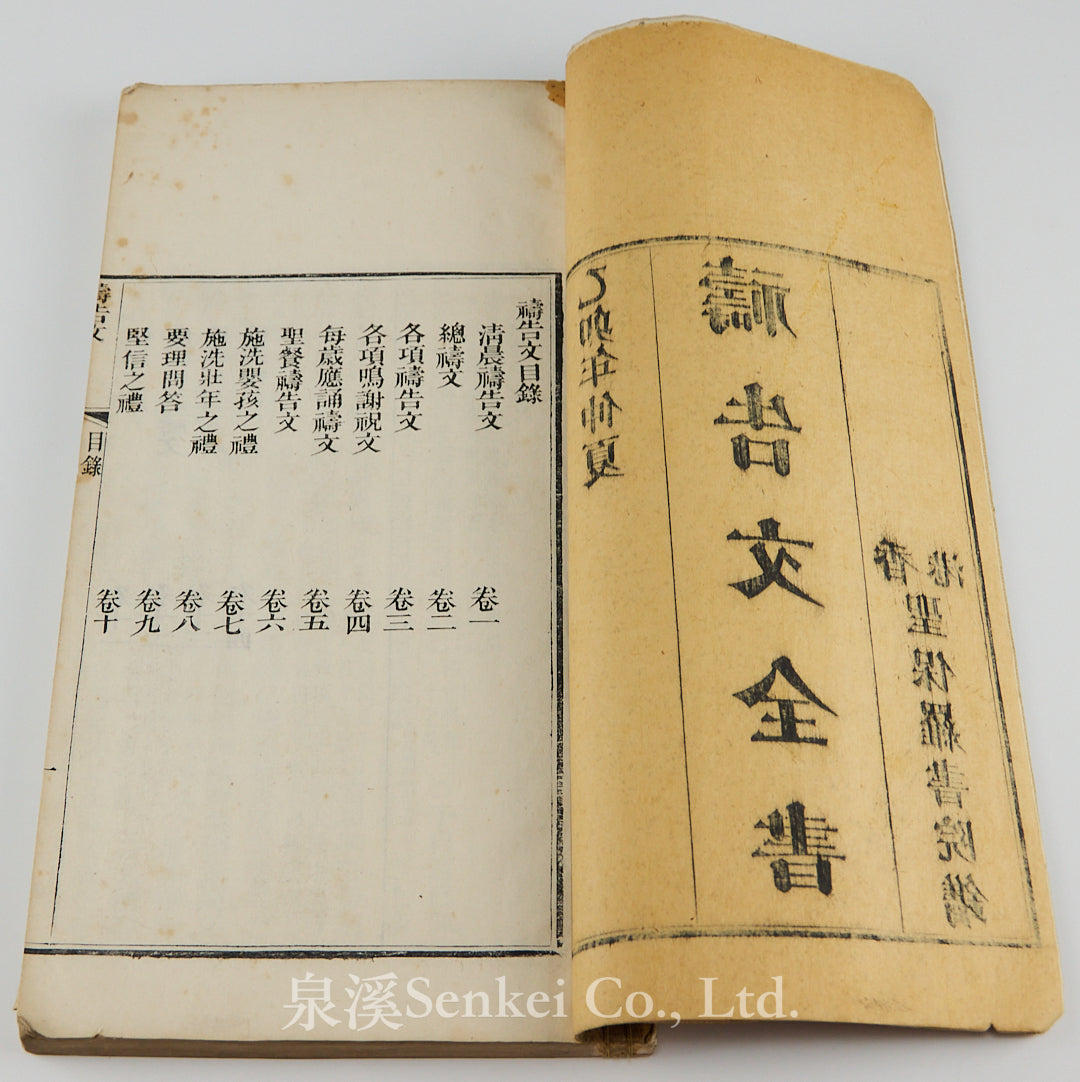 乙卯年仲夏
禱告文全書
香港聖保羅書院鐫
禱告文目錄
清晨禱告文 卷一
總禱文 卷二
各項禱告文 卷三
各項鳴謝祝文 卷四
每歲應誦禱文 卷五
聖餐禱告文 卷六
施洗嬰孩之禮 卷七
施洗壯年之禮 卷八
要理問答 卷九
堅信之禮 卷十
禱告文 目錄 一
泉溪Senkei Co., Ltd.